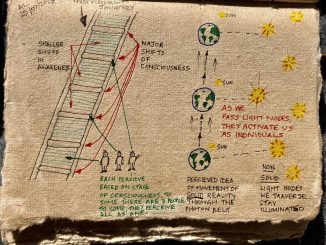 INDIVIDUAL JOURNEY
25/07/2012
SMALLER
SHIFTS
IN
AWARENESS
MAJOR
SHIFTS
OF
CONSCIOUSNESS
EACH PERCEIVE
BASED ON STAGE
OF CONSCIOUSNESS. TO
SOME THERE ARE 3 PEOPLE
TO SOME THEY PERCEIVE
ALL AS ONE
SUN
SUN
AS WE
PASS LIGHT NODES,
THEY ACTIVATE US
AS INDIVIDUALS
SUN
PERCIEVED IDEA
OF MOVEMENT OF
SOLID REALITY
THROUGH THE
PHOTON BELT
NON
SOLID
LIGHT NODES
WE TRAVERSE.
STAY
ILLUMINATED